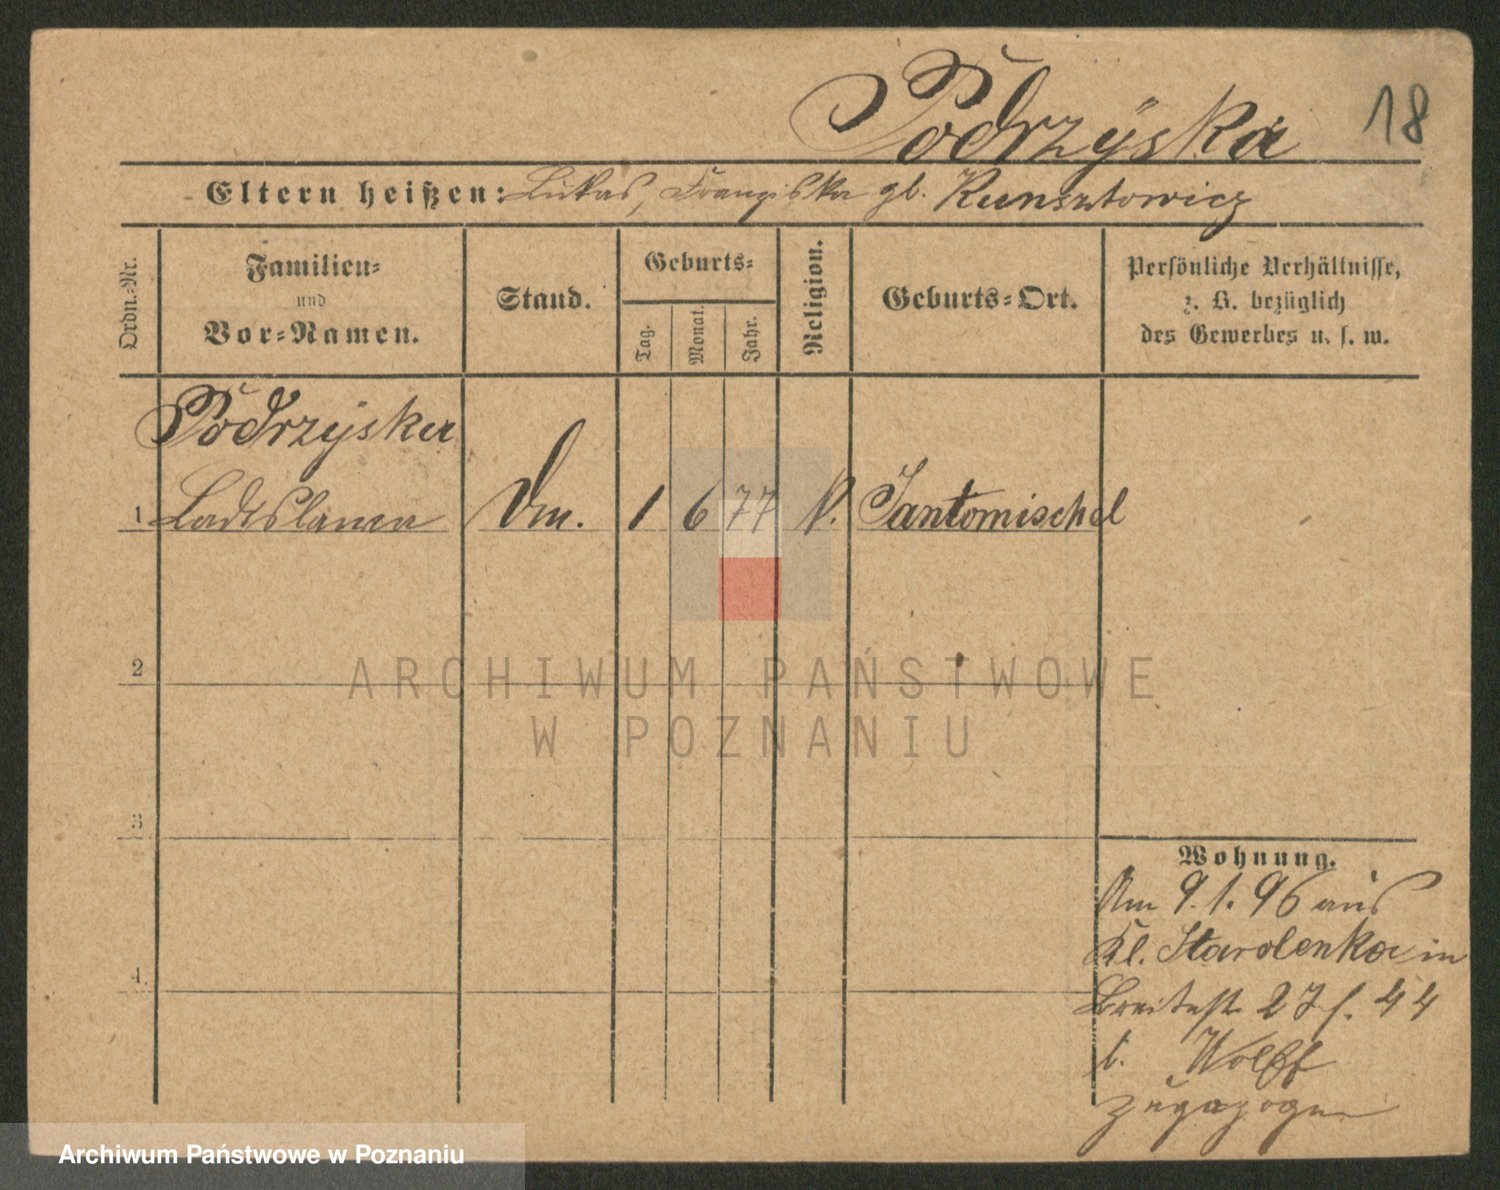 Podrzyska
18
Eltern heißen: Lukas, Franziska gb. Kunsztowicz
Ordn.-Nr.
Familien-
und
Vor-Namen.
Stand.
Geburts-
Tag.
Monat.
Jahr.
Religion.
Geburts-Ort.
Persönliche Verhältnisse,
z. B. bezüglich
des Gewerbes u. s. w.
Podrzyska
1 Ladislawa Dm. 1 6 77 k. Jantomischel
2
3
4.
ARCHIWUM PAŃSTWOWE
W POZNANIU
Wohnung.
Am 9.1.96 aus
Kl. Starolenka in
Breitestr 27 f. 44
b. Wolff
zugezogen
Archiwum Państwowe w Poznaniu